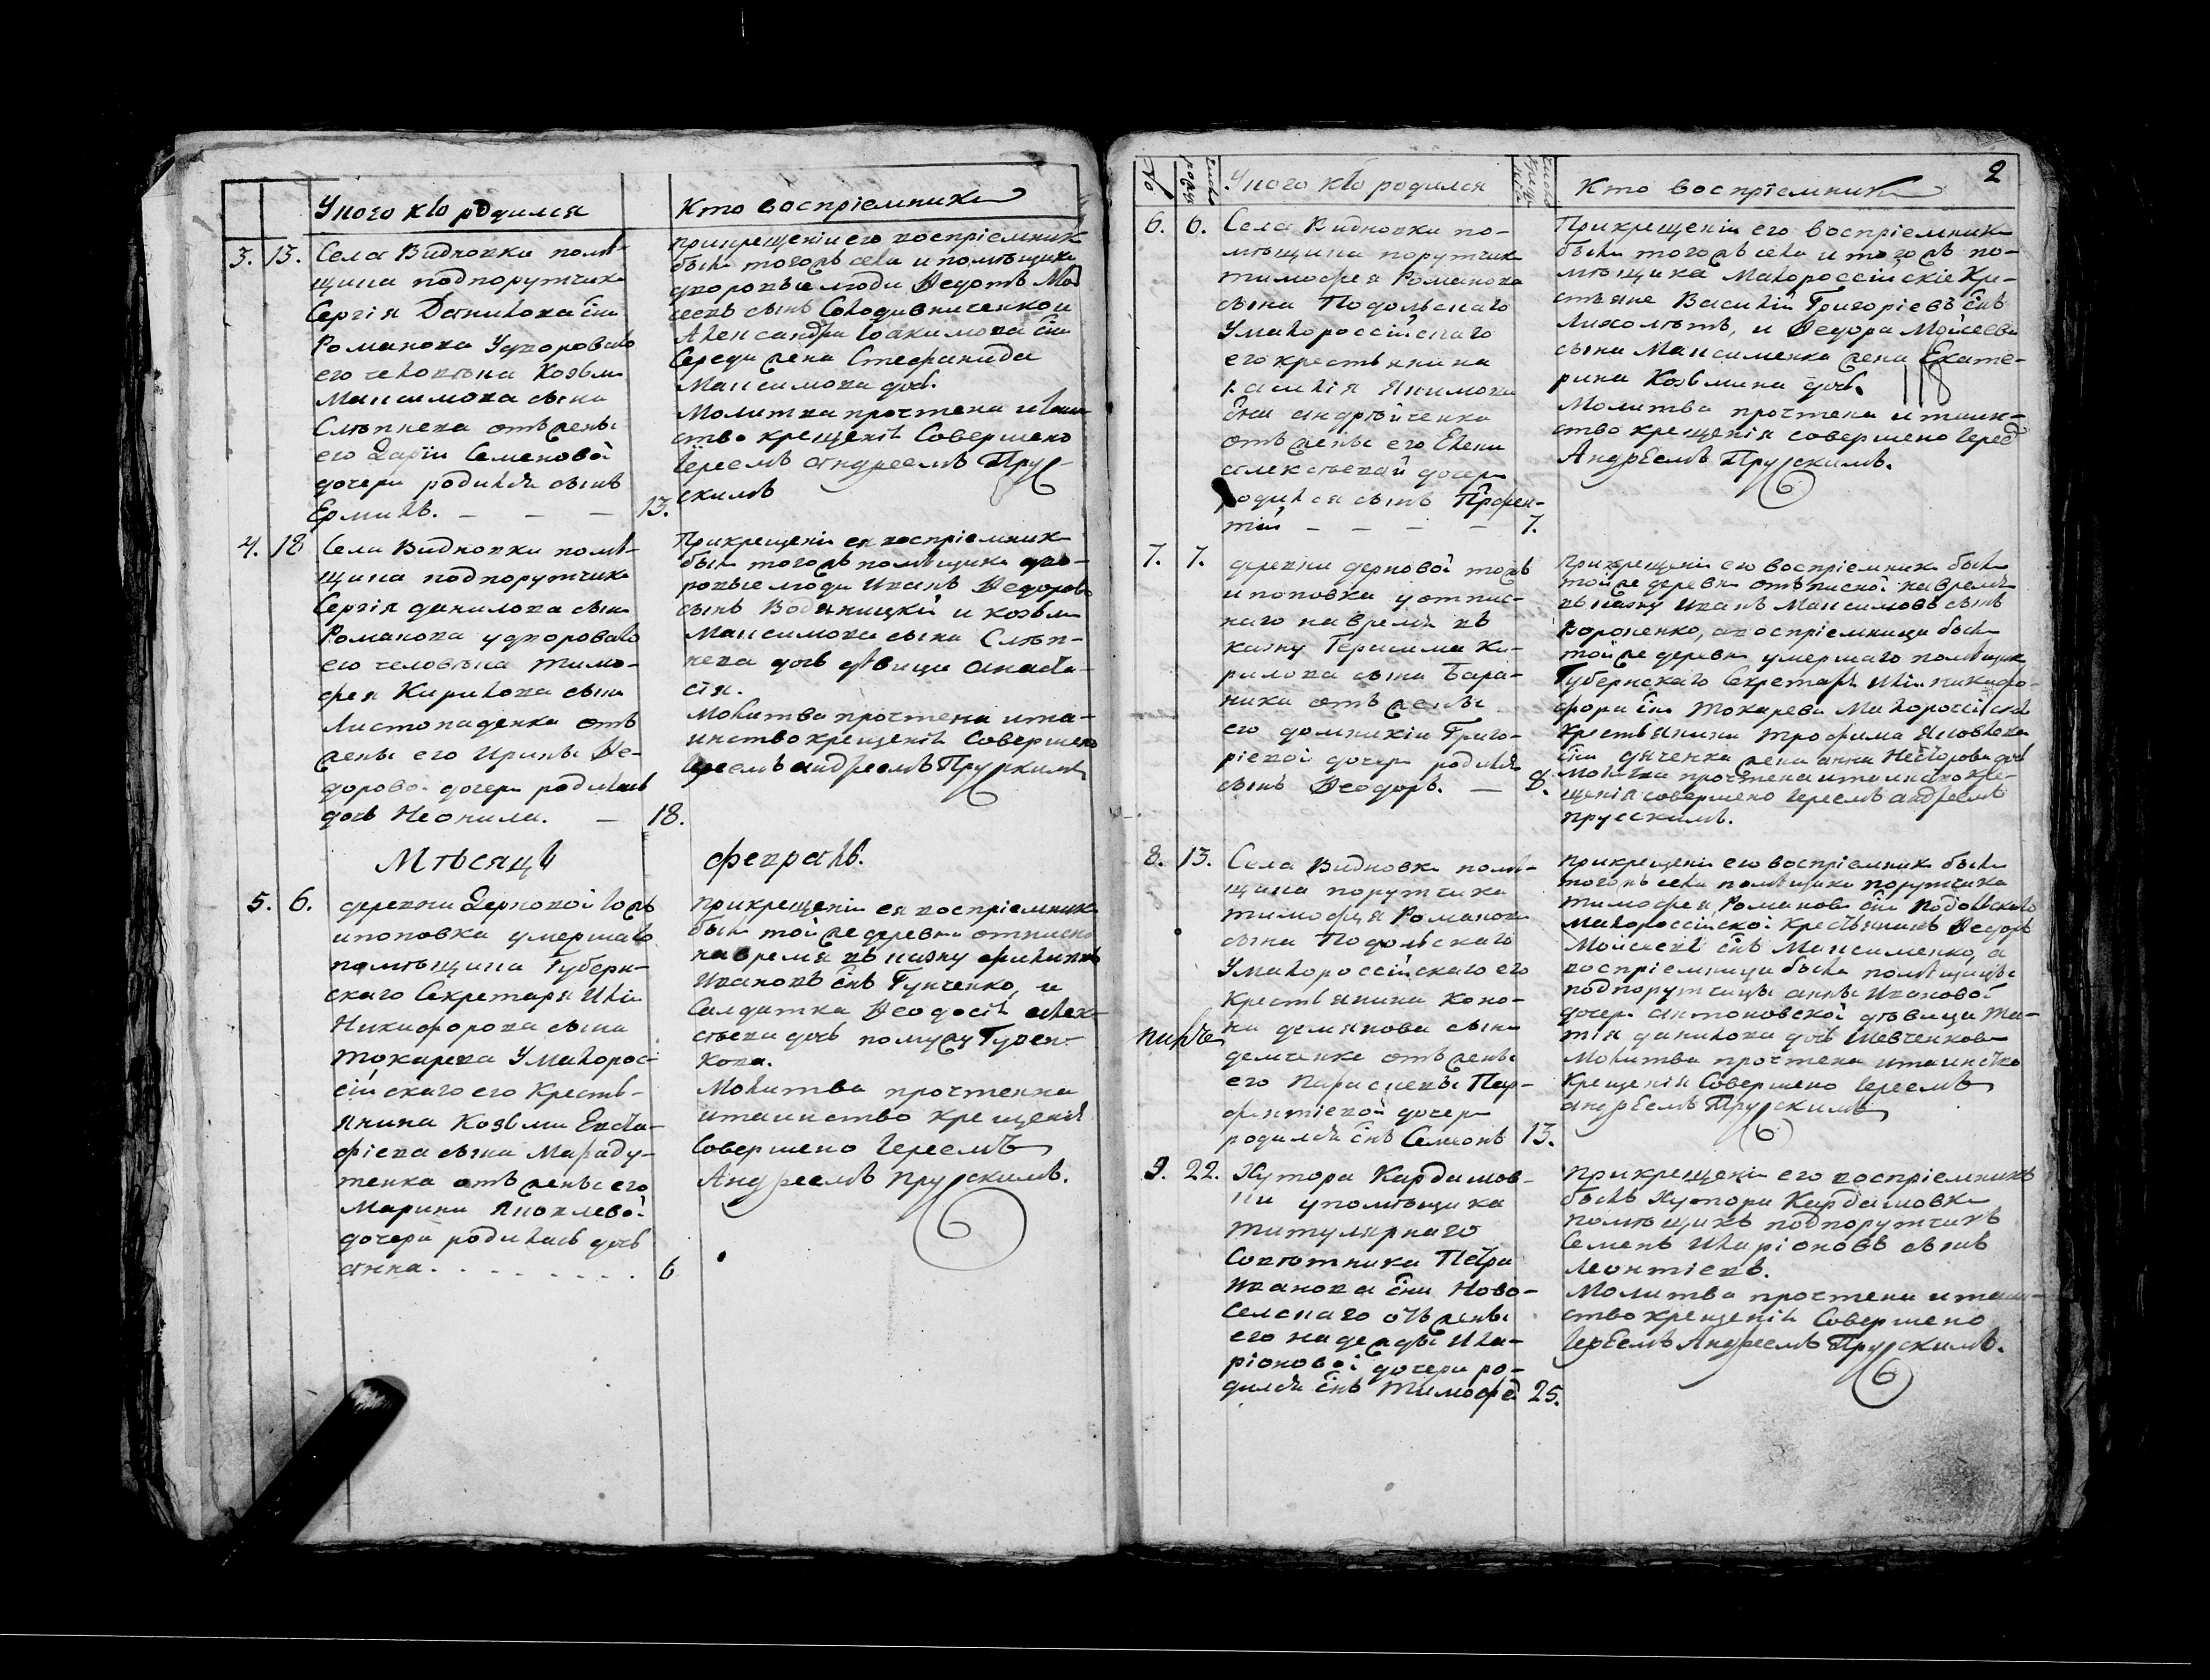 Уного кто родился
Кто восприемники
3. 13. Села Видновки помѣ-
щика подпорутчика
Сергія Данилова сна
Романова Удвороваго
его человѣка Козьми
Максимова сына
Слѣпнева отъ жены
его Дарїи Семеновой
дочери родился сынъ
Ермилъ. — — — 13.
прикрещеніи его воспріемник
были тогожъ села и помѣщика
дворовые люди Ѳедотъ Мой
сеевъ сынъ и
Александра сна
Середи жена Стефанида
Максимова дочь.
Молитва прочтена и таин-
ство крещенія Совершено
Іереемъ Андреемъ Прус-
скимъ
4. 18 Села Видновки помѣ-
щика подпорутчика
Сергія данилова сына
Романова удвороваго
его человѣка тимо-
фея Кирилова сына
Листопаденка отъ
жены его Ирины Ѳе-
доровой дочери родилась
дочь Неонила. — 18.
Прикрещеніи ея воспріемник
были тогожъ помѣщика дво-
ровые люди Иванъ Ѳедоровъ
сынъ Водяницкій и козьми
Максимова сына Слѣп-
нева дочь дѣвица анаста-
сія.
Молитва прочтена ита-
инство крещенія Совершено
Іереемъ андреемъ Прускимъ
Мѣсяцъ
февраль.
5. 6. деревни Дерновой тожъ
ипоповка умершаго
помѣщика Губерн-
скаго Секретаря Ильи
Никифорова сына
токарева Умалорос-
сійскаго его Кресть-
янина Козьми Евста-
фіева сына Мараду-
тенка отъ жены его
Марини Яковлевой
дочери родилась дочь
анна. . . . . . . . 6
прикрещеніи ея воспріемники
были тойже деревни отписной
навремя въ казну филиппъ
Ивановъ снъ Гунченко, и
Салдатка Ѳеодосія алек-
сѣева дочь помужу
кова.
Молитва прочтенна
итаинство крещенія
Совершено Іереемъ
Андреемъ прусскимъ.
2
Уного кто родился
Кто воспріемники
6. 6. Села Видновки по-
мѣщика порутчика
тимофея Романова
сына Подольскаго
Умалороссійскаго
его крестьянина
василія Якимова
сна андрѣйченка
отъ жены его Елени
алексѣевой дочери
родился сынъ Порфен-
тій — — — — 7.
Прикрещеніи его воспріемник
были тогожъ села итогожъ по-
мѣщика Малороссійскіе Кре-
стьяне Василій Григоріевъ снъ
Лихолѣтъ, и Ѳедора Мойсеева
сына Максименка жена Екате-
рина Козьмина дочь.
118
Молитва прочтена итаин-
ство крещенія совершено Іерее
Андреемъ Прусскимъ.
7. 7. деревни дерновой тожъ
ипоповка уотпис-
наго навремя въ
казну Герасима Ки-
рилова сына Бара-
ника отъ жены
его домникіи Григо-
ріевой дочери родился
сынъ Ѳеодоръ. — 8.
Прикрещеніи его воспріемники были
тойже деревни отписной навремя
въ казну Иванъ Максимовъ сынъ
Вороненко, авоспріемница была
тойже деревни умершаго помѣщика
Губернскаго Секретаря Ильи никифо-
форова сна токарева Малороссійска
Крестьянина трофима Яковлева
сна дяченка жена анна Несторова дочь
Молитва прочтена итаинство кре-
щенія совершено Іереемъ андреемъ
прусскимъ.
8. 13. Села Видновки помѣ-
щика порутчика
тимофея Романова
сына Подольскаго
Умалороссійскаго его
Крестьянина Коно-
на демянова сына
демченка отъ жены
его Параскевы Пар-
фентіевой дочери
родился снъ Семіонъ 13.
прикрещеніи его воспріемники были
тогожъ села помѣщика порутчика
тимофея Романова сна подольскаго
малороссійской крестьянинъ Ѳедоръ
Мойсеевъ снъ Максименко, а
воспріемница была помѣщицы
подпорутчицы анны Ивановой
дочери антоновской дѣвица та-
тія данилова дочь Шевченкова
Молитва прочтена итаинство
Крещенія Совершено Іереемъ
андреемъ Прусскимъ
9. 22. Хутора Кардашов-
ки упомѣщика
титулярнаго
Совѣтника Петра
Иванова сна Ново-
селскаго отъ жены
его надежды Ила-
ріоновой дочери ро-
дился снъ тимофей 25.
прикрещеніи его воспріемникъ
былъ Хутора Кардашовки
помѣщикъ подпорутчикъ
Семенъ Иларіоновъ сынъ
Леонтіевъ.
Молитва прочтена итаин-
ство крещенія Совершено
Іереемъ Андреемъ Прусскимъ.